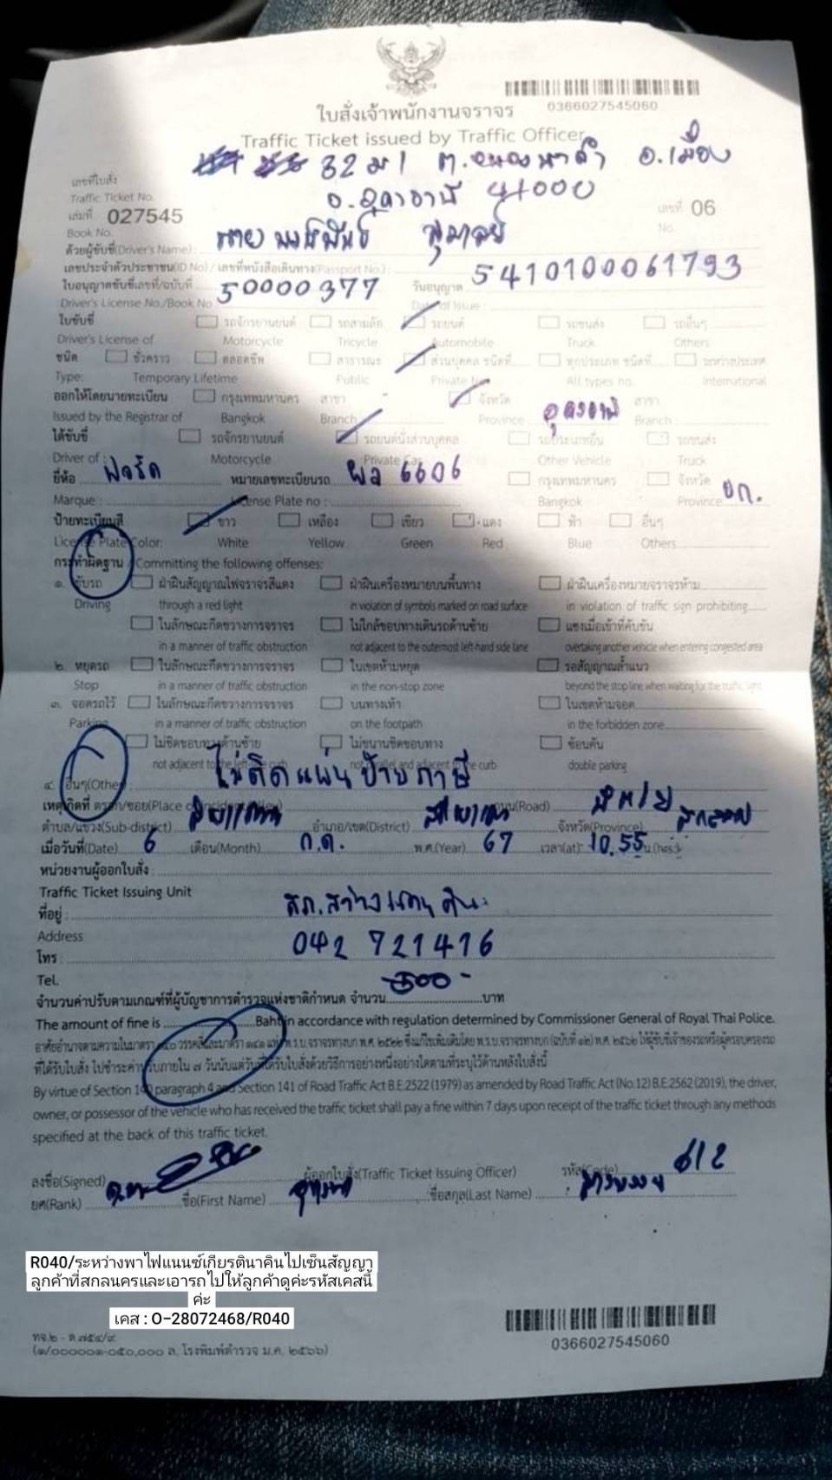 0366027545060
ใบสั่งเจ้าพนักงานจราจร
Traffic Ticket issued by Traffic Officer
32 ม 1 ต. อ.เมือง
เลขที่ใบสั่ง
จ.อุดรธานี 41000
Traffic Ticket No.
เล่มที่ 027545 เลขที่ 06
Book No. No.
ด้วยผู้ขับขี่(Driver's Name)
เลขประจำตัวประชาชน(ID No) / เลขที่หนังสือเดินทาง(Passport No.) 5410100061793
ใบอนุญาตขับขี่เลขที่/ฉบับที่ 50000377 วันอนุญาต
Driver's License No./Book No Date of Issue
ใบขับขี่ รถจักรยานยนต์ รถสามล้อ รถยนต์ รถขนส่ง รถอื่นๆ
Driver's License of Motorcycle Tricycle Automobile Truck Others
ชนิด ชั่วคราว ตลอดชีพ สาธารณะ ส่วนบุคคล ชนิดที่ ทุกประเภท ชนิดที่ ระหว่างประเทศ
Type: Temporary Lifetime Public Private No All types no. International
ออกให้โดยนายทะเบียน กรุงเทพมหานคร สาขา จังหวัด อุดรธานี สาขา
Issued by the Registrar of Bangkok Branch Province Branch
ได้ขับขี่ รถจักรยานยนต์ รถยนต์นั่งส่วนบุคคล รถประเภทอื่น รถขนส่ง
Driver of : Motorcycle Private Car Other Vehicle Truck
ยี่ห้อ ฟอร์ด หมายเลขทะเบียนรถ 6606 กรุงเทพมหานคร จังหวัด
Marque : License Plate no : Bangkok Province
ป้ายทะเบียนสี ขาว เหลือง เขียว แดง ฟ้า อื่นๆ
License Plate Color: White Yellow Green Red Blue Others
กระทำผิดฐาน / Committing the following offenses:
๑. ขับรถ ฝ่าฝืนสัญญาณไฟจราจรสีแดง ฝ่าฝืนเครื่องหมายบนพื้นทาง ฝ่าฝืนเครื่องหมายจราจรห้าม
Driving through a red light in violation of symbols marked on road surface in violation of traffic sign prohibiting
ในลักษณะกีดขวางการจราจร ไม่ใกล้ขอบทางเดินรถด้านซ้าย แซงเมื่อเข้าที่คับขัน
in a manner of traffic obstruction not adjacent to the outermost left-hand side lane overtaking another vehicle when entering congested area
๒. หยุดรถ ในลักษณะกีดขวางการจราจร ในเขตห้ามหยุด รอสัญญาณล้ำแนว
Stop in a manner of traffic obstruction in the non-stop zone beyond the stop line when waiting for the traffic light
๓. จอดรถไว้ ในลักษณะกีดขวางการจราจร บนทางเท้า ในเขตห้ามจอด
Parking in a manner of traffic obstruction on the footpath in the forbidden zone
ไม่ชิดขอบทางด้านซ้าย ไม่ขนานชิดขอบทาง ซ้อนคัน
not adjacent to the left curb not parallel and adjacent to the curb double parking
๔. อื่นๆ(Other) ไม่ติดแผ่นป้ายภาษี
เหตุเกิดที่ ตรอก/ซอย(Place ถนน(Road)
ตำบล/แขวง(Sub-district) อำเภอ/เขต(District) จังหวัด(Province) สกลนคร
เมื่อวันที่(Date) 6 เดือน(Month) ก.ค. พ.ศ.(Year) 67 เวลา(at) 10.55 น.(hrs.)
หน่วยงานผู้ออกใบสั่ง
Traffic Ticket Issuing Unit
ที่อยู่ สภ.สว่างแดนดิน
Address
โทร 042 721416
Tel.
จำนวนค่าปรับตามเกณฑ์ที่ผู้บัญชาการตำรวจแห่งชาติกำหนด จำนวน 500- บาท
The amount of fine is Baht in accordance with regulation determined by Commissioner General of Royal Thai Police.
อาศัยอำนาจตามความในมาตรา ๑๔๐ วรรคสี่และมาตรา ๑๔๑ แห่ง พ.ร.บ.จราจรทางบก พ.ศ. ๒๕๒๒ ซึ่งแก้ไขเพิ่มเติมโดย พ.ร.บ.จราจรทางบก (ฉบับที่ ๑๒) พ.ศ. ๒๕๖๒ ให้ผู้ขับขี่เจ้าของรถหรือผู้ครอบครองรถ
ที่ได้รับใบสั่ง ไปชำระค่าปรับภายใน ๗ วันนับแต่วันที่ได้รับใบสั่งด้วยวิธีการอย่างหนึ่งอย่างใดตามที่ระบุไว้ด้านหลังใบสั่งนี้
By virtue of Section 140 paragraph 4 and Section 141 of Road Traffic Act B.E.2522 (1979) as amended by Road Traffic Act (No.12) B.E.2562 (2019), the driver,
owner, or possessor of the vehicle who has received the traffic ticket shall pay a fine within 7 days upon receipt of the traffic ticket through any methods
specified at the back of this traffic ticket.
ลงชื่อ(Signed) ผู้ออกใบสั่ง(Traffic Ticket Issuing Officer) รหัส(Code) 612
ยศ(Rank) ด.ต. ชื่อ(First Name) ชื่อสกุล(Last Name)
R040/ระหว่างพาไฟแนนซ์เกียรตินาคินไปเซ็นสัญญา
ลูกค้าที่สกลนครและเอารถไปให้ลูกค้าดูค่ะรหัสเคสนี้
ค่ะ
เคส : O-28072468/R040
0366027545060